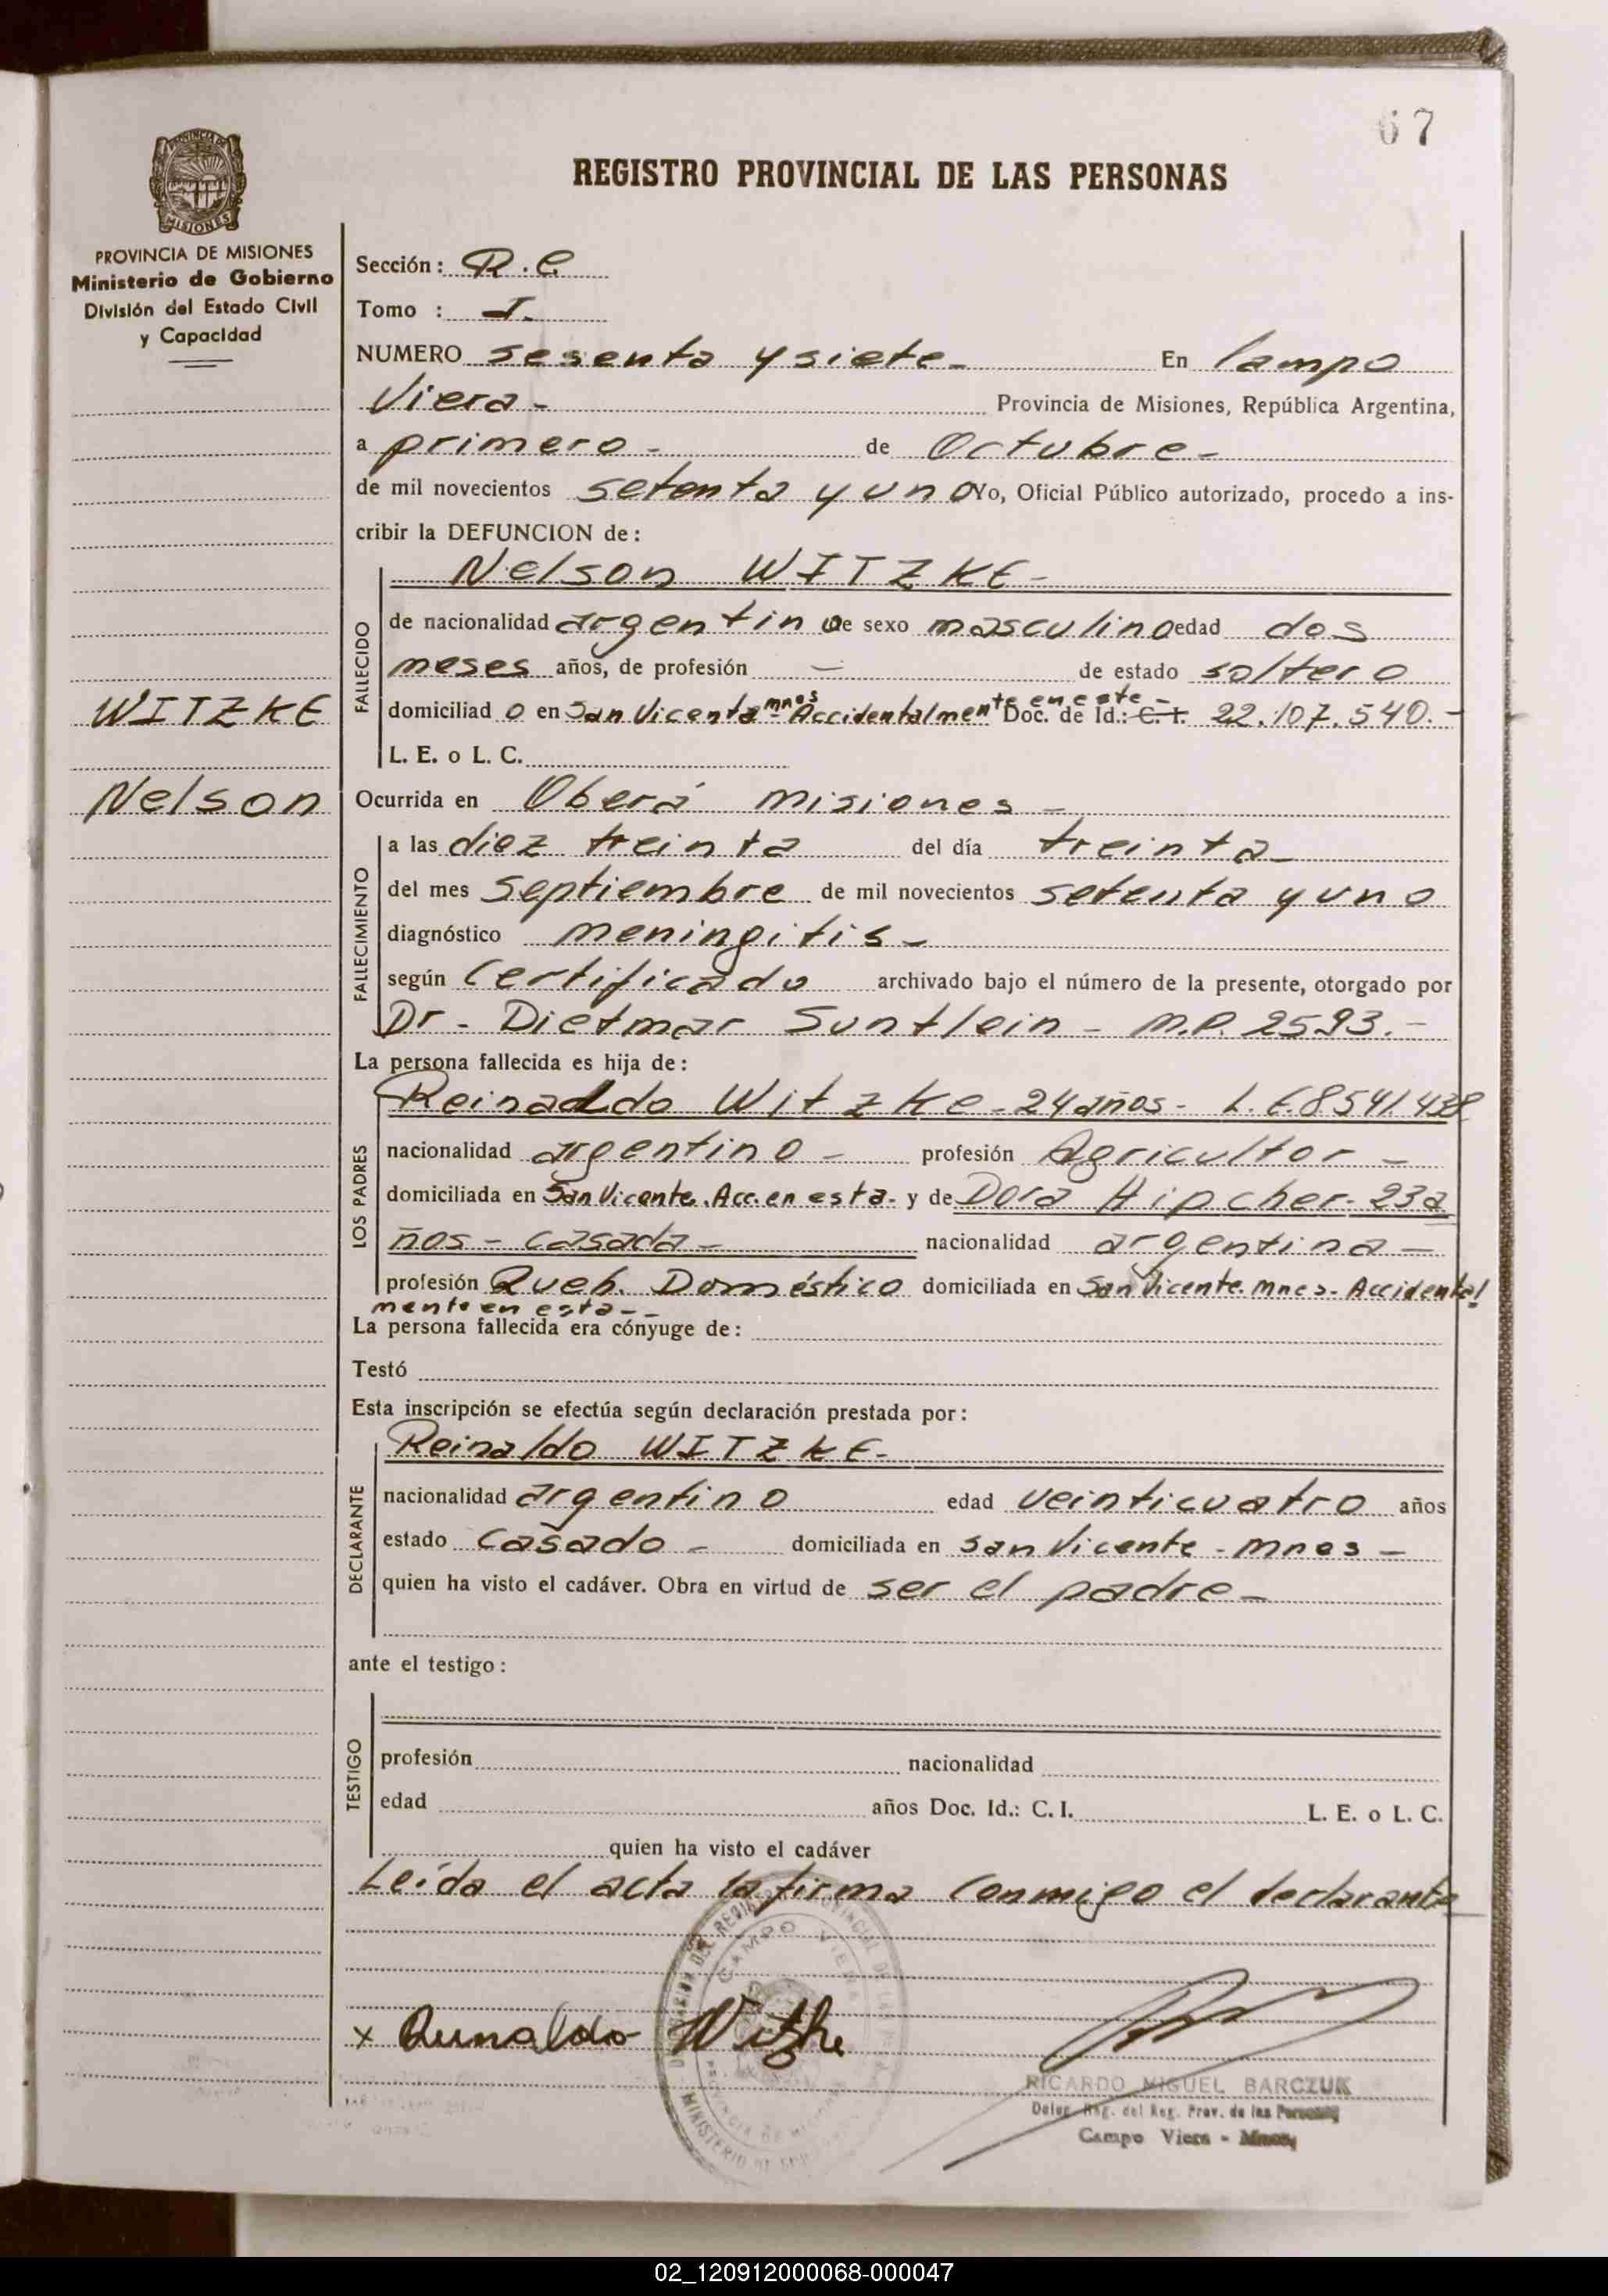 67
REGISTRO PROVINCIAL DE LAS PERSONAS
PROVINCIA DE MISIONES
Ministerio de Gobierno
División del Estado Civil
y Capacidad
Sección: R.C
Tomo : I.
NUMERO sesenta y siete - En Campo
Viera - Provincia de Misiones, República Argentina,
a primero - de Octubre -
de mil novecientos setenta y uno Yo, Oficial Público autorizado, procedo a ins-
cribir la DEFUNCION de:
Nelson WITZKE -
FALLECIDO
de nacionalidad argentino de sexo masculino edad dos
meses años, de profesión — de estado soltero
WITZKE
domiciliado en San Vicente mnes Accidentalmente en este - Doc. de Id.: C. I. 22.107.540. -
L. E. o L. C.
Nelson
Ocurrida en Oberá misiones -
FALLECIMIENTO
a las diez treinta del día treinta -
del mes septiembre de mil novecientos setenta y uno
diagnóstico meningitis -
según Certificado archivado bajo el número de la presente, otorgado por
Dr - Dietmar Suntlein - M.P. 2593. -
La persona fallecida es hija de:
LOS PADRES
Reinaldo Witzke - 24 años - L.E. 8541.438
nacionalidad argentino - profesión Agricultor -
domiciliada en San Vicente. Acc. en esta - y de Dora Hipcher - 23 a
ños - casada - nacionalidad argentina -
profesión Queh. Doméstico domiciliada en San Vicente. mnes - Accidental
mente en esta - -
La persona fallecida era cónyuge de:
Testó
Esta inscripción se efectúa según declaración prestada por:
DECLARANTE
Reinaldo WITZKE -
nacionalidad argentino edad veinticuatro años
estado casado - domiciliada en San Vicente - mnes -
quien ha visto el cadáver. Obra en virtud de ser el padre -
ante el testigo:
TESTIGO
profesión nacionalidad
edad años Doc. Id.: C. I. L. E. o L. C.
quien ha visto el cadáver
Leída el acta la firma conmigo el declarante
x Reinaldo Witzke
RICARDO MIGUEL BARCZUK
Deleg. Reg. del Reg. Prov. de las Personas
Campo Viera - Mnes.
02_120912000068-000047